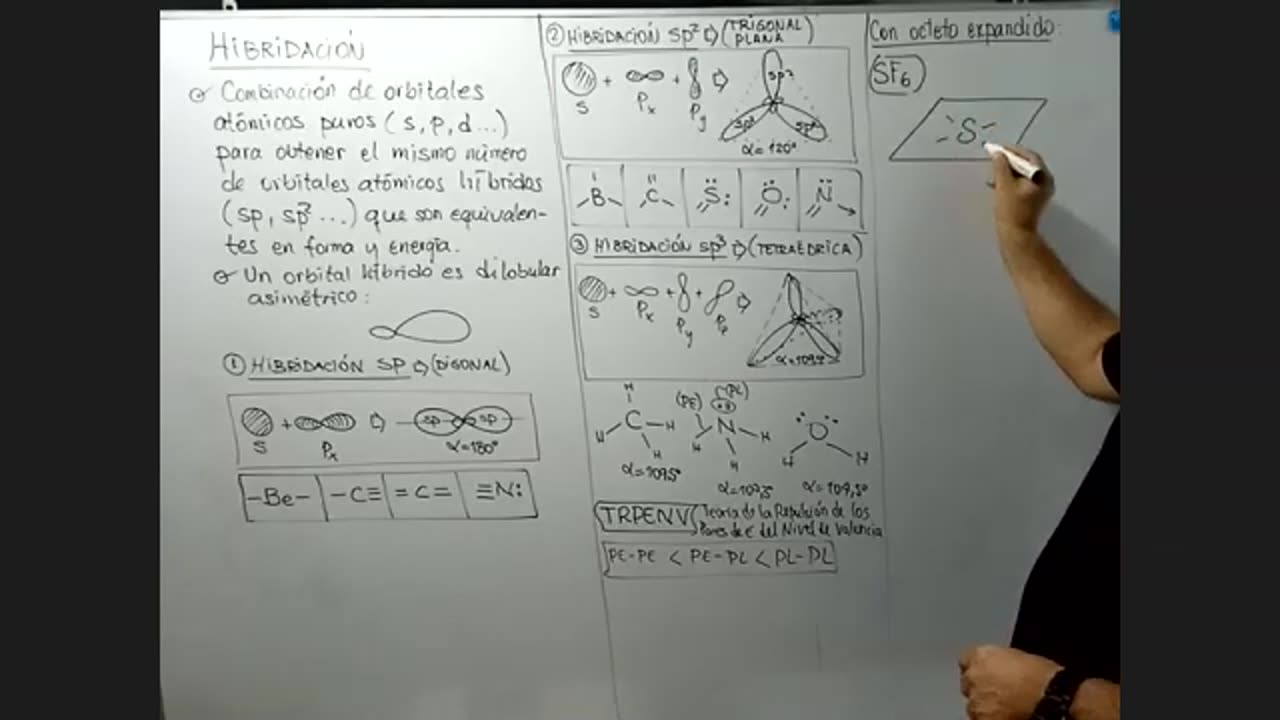 HIBRIDACIÓN
Combinación de orbitales
atómicos puros (s, p, d...)
para obtener el mismo número
de orbitales atómicos híbridos
(sp, sp² ...) que son equivalen-
tes en forma y energía.
Un orbital híbrido es dilobular
asimétrico:
① HIBRIDACIÓN SP ⇨ (DIGONAL)
S + Px ⇨ sp sp
α=180°
-Be- -C≡ =C= ≡N:
② HIBRIDACIÓN sp² ⇨ (TRIGONAL
PLANA)
S + Px + Py ⇨ sp² sp² sp²
α=120°
B C S O N
③ HIBRIDACIÓN sp³ ⇨ (TETRAÉDRICA)
S + Px + Py + Pz ⇨
α=109,5°
H H C H H
α=109,5°
(PE) (PL) H N H H
O H H
α=109,5°
TRPENV Teoría de la Repulsión de los
Pares de e⁻ del Nivel de Valencia
PE-PE < PE-PL < PL-PL
Con octeto expandido:
SF₆
S